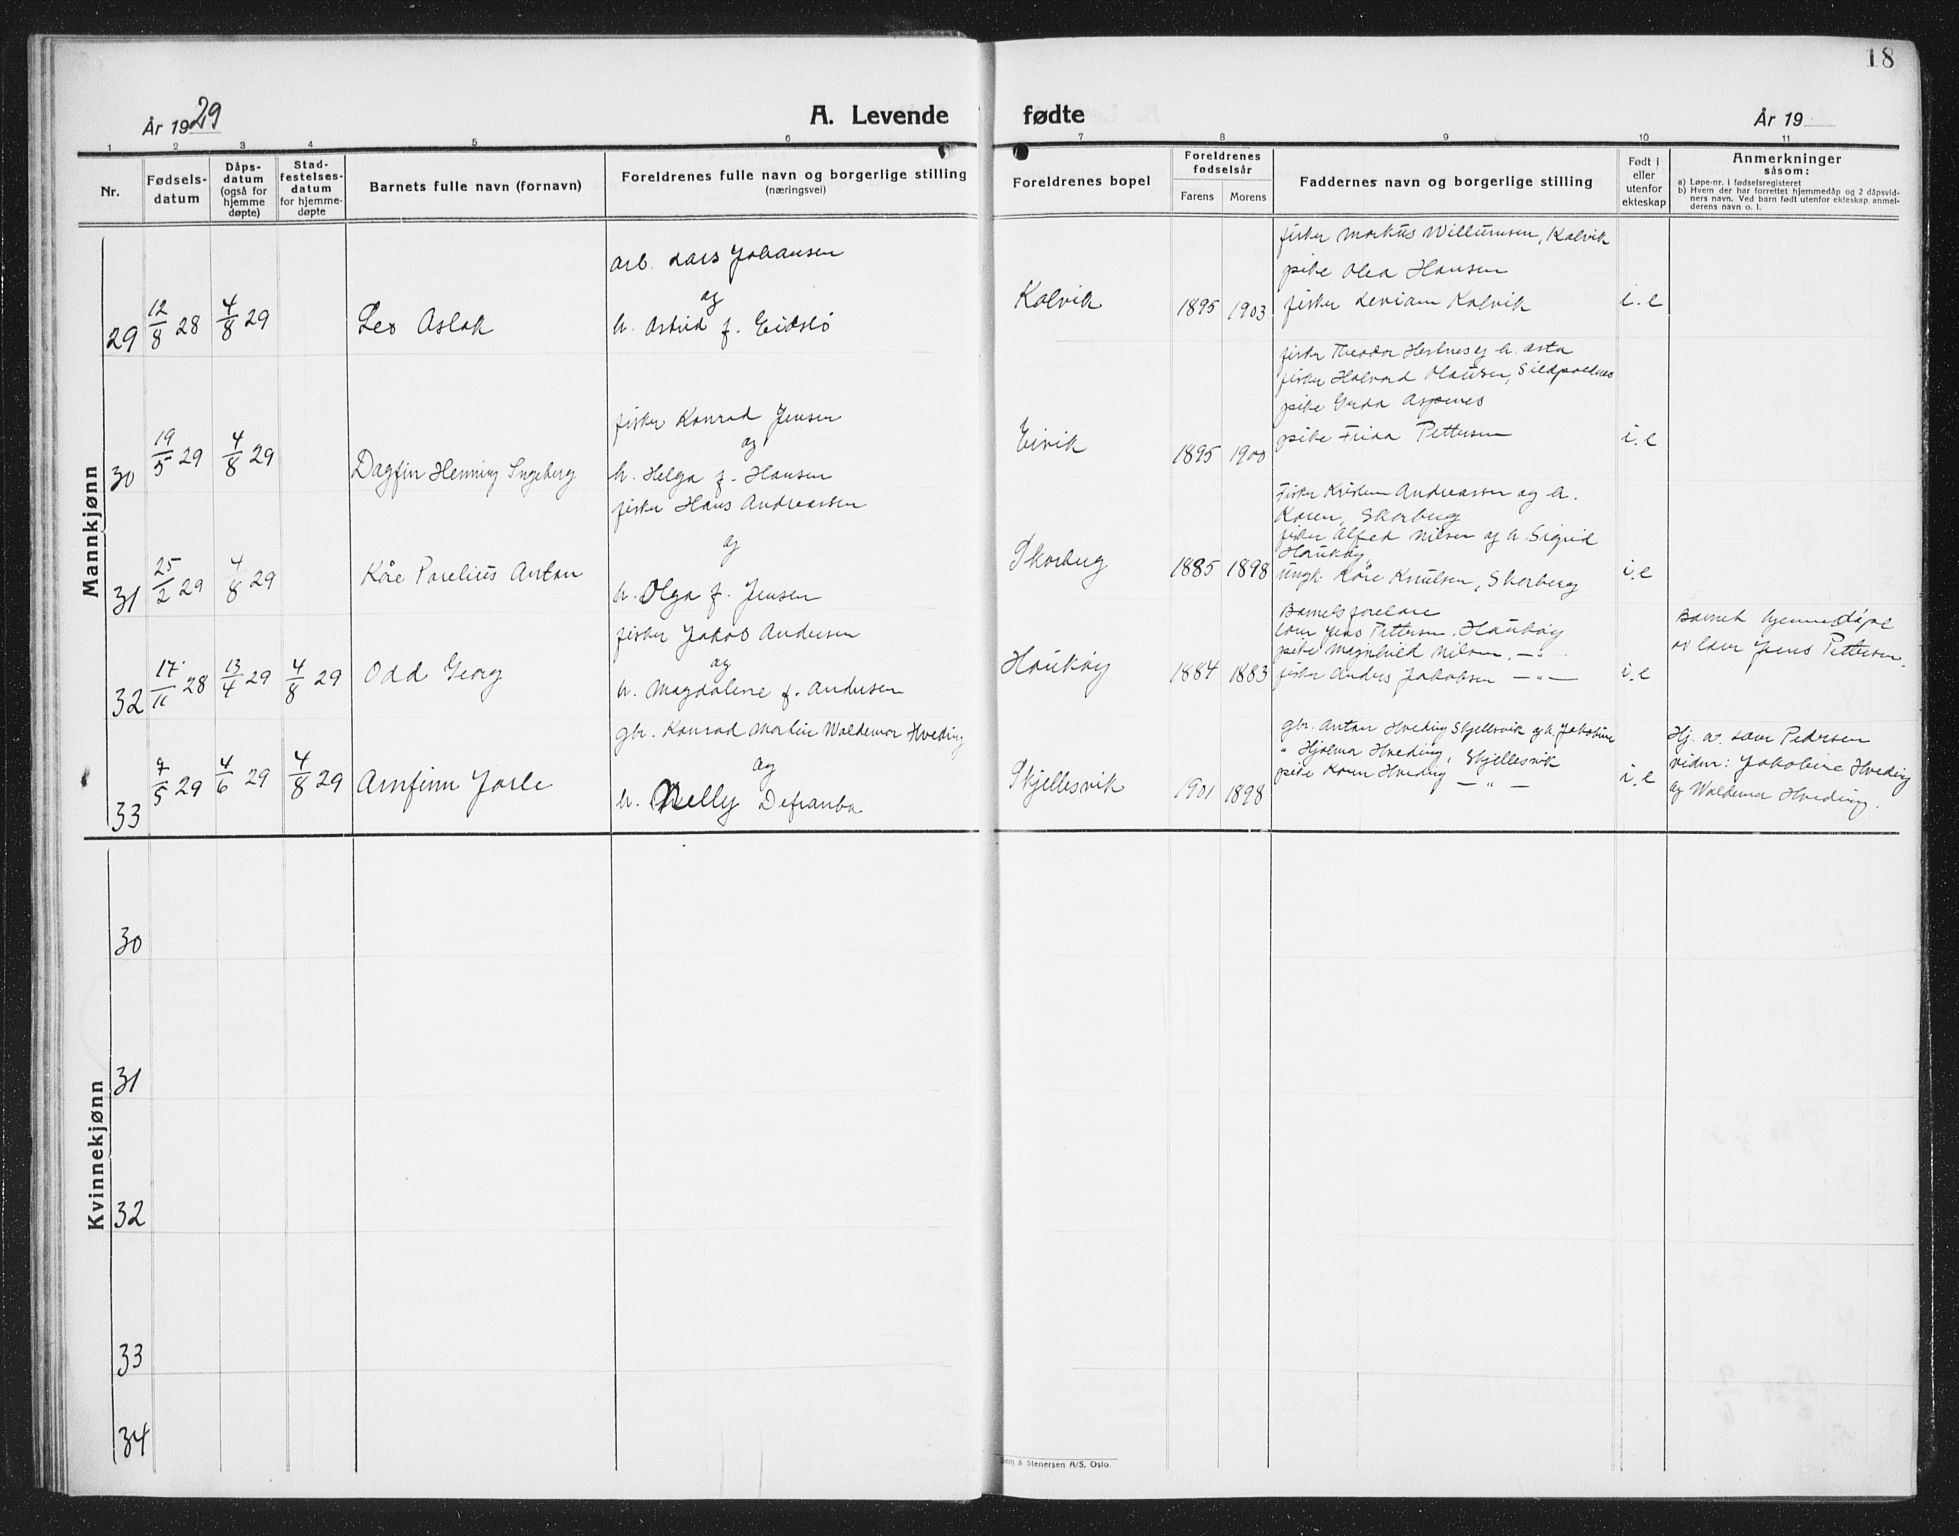 18
År 1929
A. Levende fødte
År 19
1 2 3 4 5 6 7 8 9 10 11
Nr.
Fødsels-
datum
Dåps-
datum
(også for
hjemme
døpte)
Stad-
festelses-
datum
for hjemme-
døpte
Barnets fulle navn (fornavn)
Foreldrenes fulle navn og borgerlige stilling
(næringsvei)
Foreldrenes bopel
Foreldrenes
fødselsår
Farens Morens
Faddernes navn og borgerlige stilling
Født i
eller
utenfor
ekteskap
Anmerkninger
såsom:
a) Løpe-nr. i fødselsregisteret
b) Hvem der har forrettet hjemmedåp og 2 dåpsvid-
ners navn. Ved barn født utenfor ekteskap, anmel-
derens navn o. l.
Mannkjønn
29 12/8 28 4/8 29 Leo Aslak
arb. Lars Johansen
og
h. Astrid f. Eidslö
Kalvik 1895 1903
fisker Markus Willumsen, Kalvik
pike Olea Hansen
fisker Kalvik
i.e
30 19/5 29 4/8 29 Dagfin Henning Ingeberg
fisker Konrad Jensen
og
h. Helga f. Hansen
Eivik 1895 1900
fisker Theodor og h. Asta
fisker Halvard Olausen,
pike Gerda Aspenes
pike Frida Pettersen
i.e
31 25/2 29 4/8 29 Kåre Parelius Anton
fisker Hans Andreassen
og
h. Olga f. Jensen
Skarberg 1885 1898
Fisker Kristian Andreassen og h.
Karen, Skarberg
fisker Alfred Nilsen og h. Sigrid
Haukøy
ungk. Kåre Knutsen, Skarberg
i.e
32 17/11 28 13/4 29 4/8 29 Odd Georg
fisker Jakob Andersen
og
h. Magdalene f. Andersen
Haukøy 1884 1883
Barnets foreldre
Jens Pettersen, Haukøy
pike Magnhild Nilsen, — " —
fisker Anders Jakobsen — " —
i.e
Barnet hjemmedöpt
av Jens Pettersen.
33 9/5 29 4/6 29 4/8 29 Arnfinn Jarle
gbr. Konrad Martin Waldemar Hveding
og
h. Nelly Defranba
Skjellesvik 1901 1898
gbr. Anton Hveding Skjellesvik og h. Jakobine
" Hjalmar Hveding, Skjellesvik
pike Karen Hveding — " —
i.e
Hj. av Pedersen
vidner: Jakobine Hveding
og Waldemar Hveding.
Kvinnekjønn
30
31
32
33
34
& Stenersen A/S, Oslo.